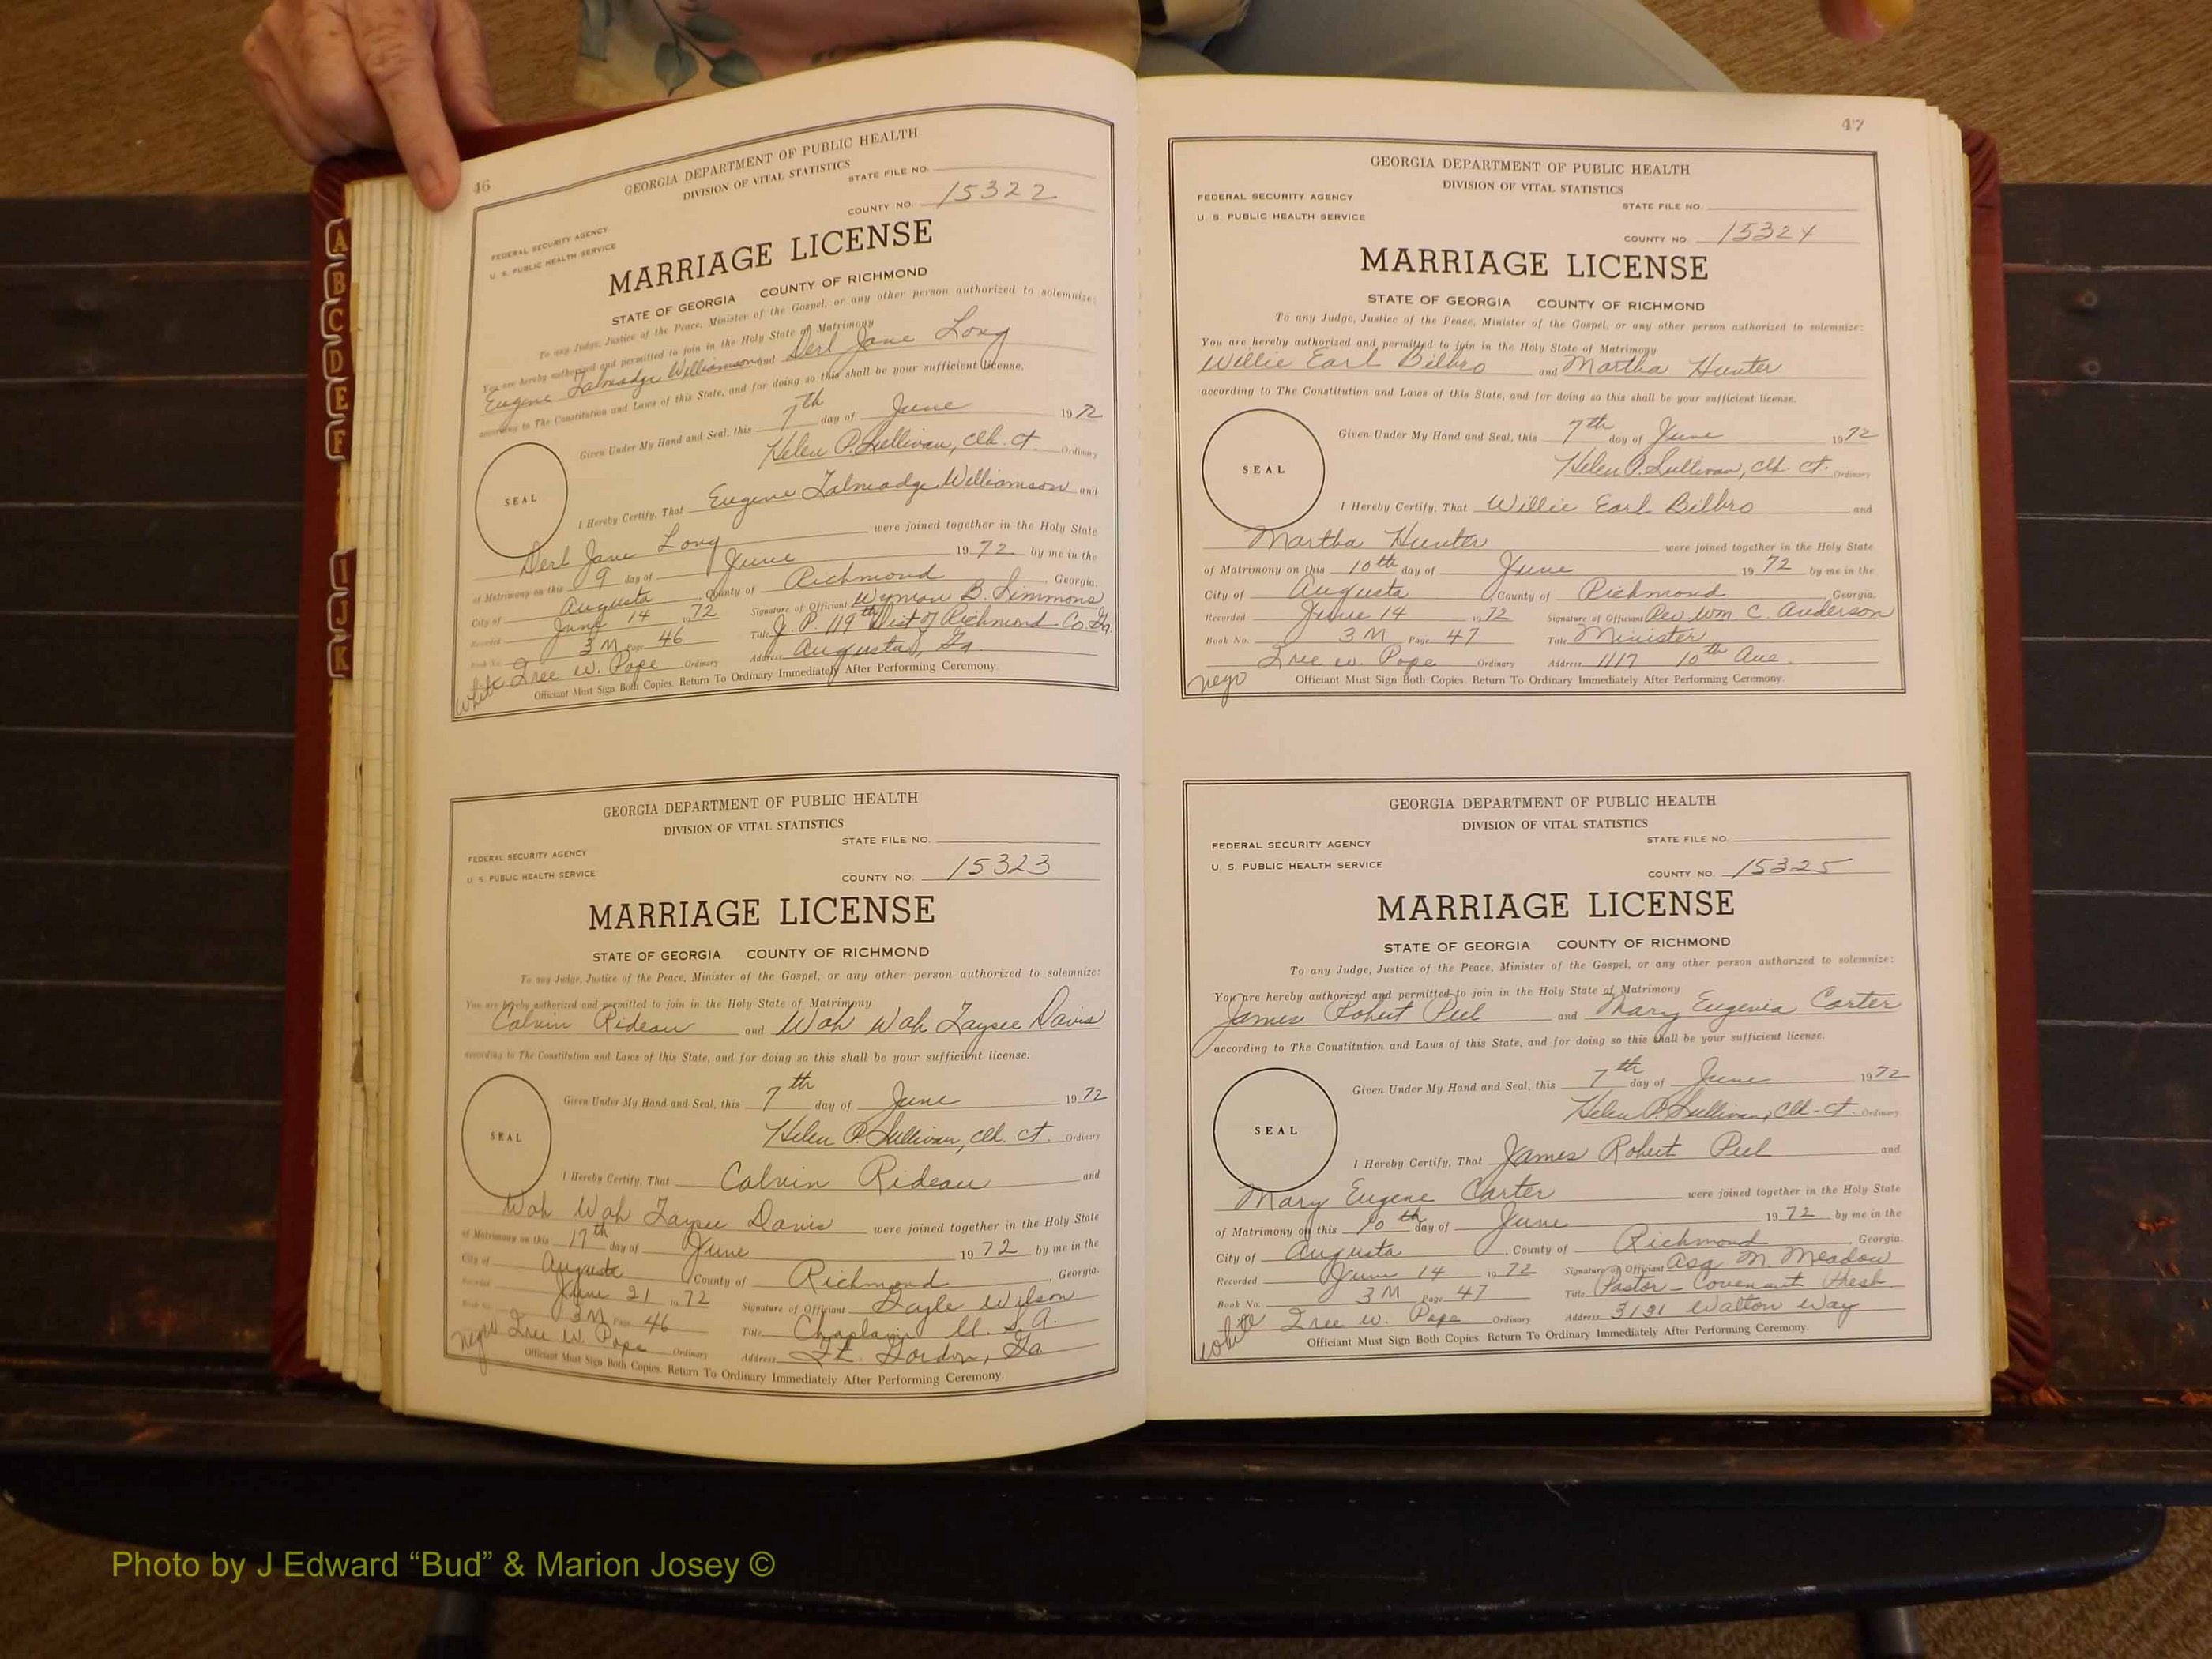 46
GEORGIA DEPARTMENT OF PUBLIC HEALTH
DIVISION OF VITAL STATISTICS
STATE FILE NO.
COUNTY NO. 15322
FEDERAL SECURITY AGENCY
U. S. PUBLIC HEALTH SERVICE
MARRIAGE LICENSE
STATE OF GEORGIA COUNTY OF RICHMOND
To any Judge, Justice of the Peace, Minister of the Gospel, or any other person authorized to solemnize:
You are hereby authorized and permitted to join in the Holy State of Matrimony
Eugene Talmadge Williamson and Derl Jane Long
according to The Constitution and Laws of this State, and for doing so this shall be your sufficient license.
Given Under My Hand and Seal, this 7th day of June 1972
Helen P. Sullivan, Clk. Ct. Ordinary
SEAL
I Hereby Certify, That Eugene Talmadge Williamson and
Derl Jane Long were joined together in the Holy State
of Matrimony on this 9 day of June 1972 by me in the
City of Augusta, County of Richmond, Georgia.
Recorded June 14 1972 Signature of Official Wyman B. Simmons
Book No. 3 M Page 46 Title J. P. 119th Dist of Richmond Co. Ga.
White Tree W. Pope Ordinary Address Augusta, Ga.
Officiant Must Sign Both Copies. Return To Ordinary Immediately After Performing Ceremony.
GEORGIA DEPARTMENT OF PUBLIC HEALTH
DIVISION OF VITAL STATISTICS
STATE FILE NO.
FEDERAL SECURITY AGENCY
U. S. PUBLIC HEALTH SERVICE
COUNTY NO. 15323
MARRIAGE LICENSE
STATE OF GEORGIA COUNTY OF RICHMOND
To any Judge, Justice of the Peace, Minister of the Gospel, or any other person authorized to solemnize:
You are hereby authorized and permitted to join in the Holy State of Matrimony
Calvin Rideau and Wah Wah Taysee Davis
according to The Constitution and Laws of this State, and for doing so this shall be your sufficient license.
Given Under My Hand and Seal, this 7th day of June 1972
Helen P. Sullivan, Clk. Ct. Ordinary
SEAL
I Hereby Certify, That Calvin Rideau and
Wah Wah Taysee Davis were joined together in the Holy State
of Matrimony on this 17th day of June 1972 by me in the
City of Augusta County of Richmond, Georgia.
Recorded June 21 1972 Signature of Official Gayle Wilson
Book No. 3M Page 46 Title Chaplain U. S. A.
negro Tree W. Pope Ordinary Address Ft. Gordon, Ga
Officiant Must Sign Both Copies. Return To Ordinary Immediately After Performing Ceremony.
47
GEORGIA DEPARTMENT OF PUBLIC HEALTH
DIVISION OF VITAL STATISTICS
FEDERAL SECURITY AGENCY
U. S. PUBLIC HEALTH SERVICE
STATE FILE NO.
COUNTY NO. 15324
MARRIAGE LICENSE
STATE OF GEORGIA COUNTY OF RICHMOND
To any Judge, Justice of the Peace, Minister of the Gospel, or any other person authorized to solemnize:
You are hereby authorized and permitted to join in the Holy State of Matrimony
Willie Earl Bilbro and Martha Hunter
according to The Constitution and Laws of this State, and for doing so this shall be your sufficient license.
Given Under My Hand and Seal, this 7th day of June 1972
Helen P. Sullivan, Clk. Ct. Ordinary
SEAL
I Hereby Certify, That Willie Earl Bilbro and
Martha Hunter were joined together in the Holy State
of Matrimony on this 10th day of June 1972 by me in the
City of Augusta County of Richmond, Georgia.
Recorded June 14 1972 Signature of Official Rev. Wm. C. Anderson
Book No. 3 M Page 47 Title Minister
Tree W. Pope Ordinary Address 1117 10th Ave.
negro Officiant Must Sign Both Copies. Return To Ordinary Immediately After Performing Ceremony.
GEORGIA DEPARTMENT OF PUBLIC HEALTH
DIVISION OF VITAL STATISTICS
FEDERAL SECURITY AGENCY
U. S. PUBLIC HEALTH SERVICE
STATE FILE NO.
COUNTY NO. 15325
MARRIAGE LICENSE
STATE OF GEORGIA COUNTY OF RICHMOND
To any Judge, Justice of the Peace, Minister of the Gospel, or any other person authorized to solemnize:
You are hereby authorized and permitted to join in the Holy State of Matrimony
James Robert Peel and Mary Eugenia Carter
according to The Constitution and Laws of this State, and for doing so this shall be your sufficient license.
Given Under My Hand and Seal, this 7th day of June 1972
Helen P. Sullivan, Clk. Ct. Ordinary
SEAL
I Hereby Certify, That James Robert Peel and
Mary Eugene Carter were joined together in the Holy State
of Matrimony on this 10th day of June 1972 by me in the
City of Augusta, County of Richmond, Georgia.
Recorded June 14 1972 Signature of Official Asa M. Meadow
Book No. 3 M Page 47 Title Pastor - Covenant Presb
white Tree W. Pope Ordinary Address 3131 Walton Way
Officiant Must Sign Both Copies. Return To Ordinary Immediately After Performing Ceremony.
A
B
C
D
E
F
I
J
K
Photo by J Edward “Bud” & Marion Josey ©